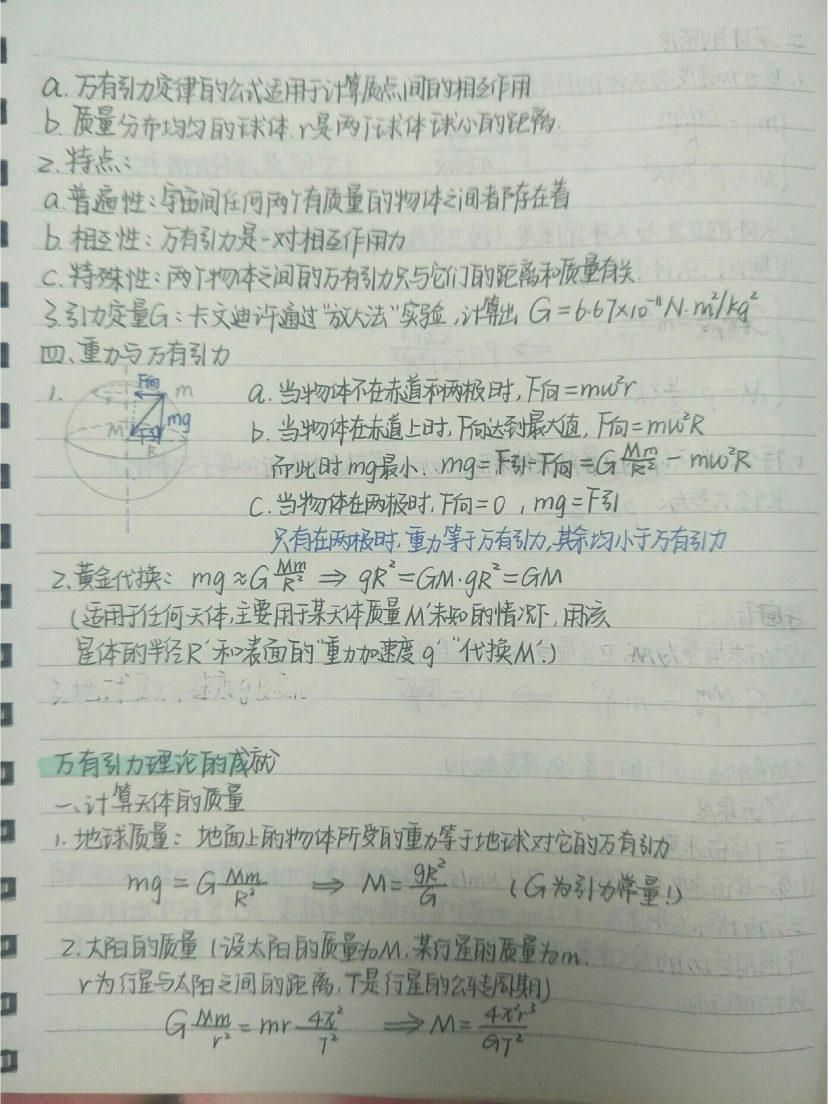 a. 万有引力定律的公式适用于计算质点间的相互作用
b. 质量分布均匀的球体, r是两个球体球心的距离.
2. 特点:
a. 普遍性: 宇宙间任何两个有质量的物体之间都存在着
b. 相互性: 万有引力是一对相互作用力
c. 特殊性: 两个物体之间的万有引力只与它们的距离和质量有关.
3. 引力定量G: 卡文迪许通过"放大法"实验, 计算出 G=6.67×10⁻¹¹N·m²/kg²
四、重力与万有引力
1.
F向
m
mg
M
R
a. 当物体不在赤道和两极时, F向=mω²r
b. 当物体在赤道上时, F向达到最大值, F向=mω²R
而此时mg最小. mg=F引-F向=G Mm/R² - mω²R
c. 当物体在两极时, F向=0, mg=F引
只有在两极时, 重力等于万有引力, 其余均小于万有引力
2. 黄金代换: mg≈G Mm/R² ⇒ gR²=GM·gR²=GM
(适用于任何天体, 主要用于某天体质量M未知的情况下, 用该
星体的半径R'和表面的"重力加速度g'"代换M'.)
万有引力理论的成就
一、计算天体的质量
1. 地球质量: 地面上的物体所受的重力等于地球对它的万有引力
mg=G Mm/R² ⇒ M=gR²/G (G为引力常量!)
2. 太阳的质量 (设太阳的质量为M, 某行星的质量为m.
r为行星与太阳之间的距离, T是行星的公转周期)
G Mm/r² = mr 4π²/T² ⇒ M=4π²r³/GT²